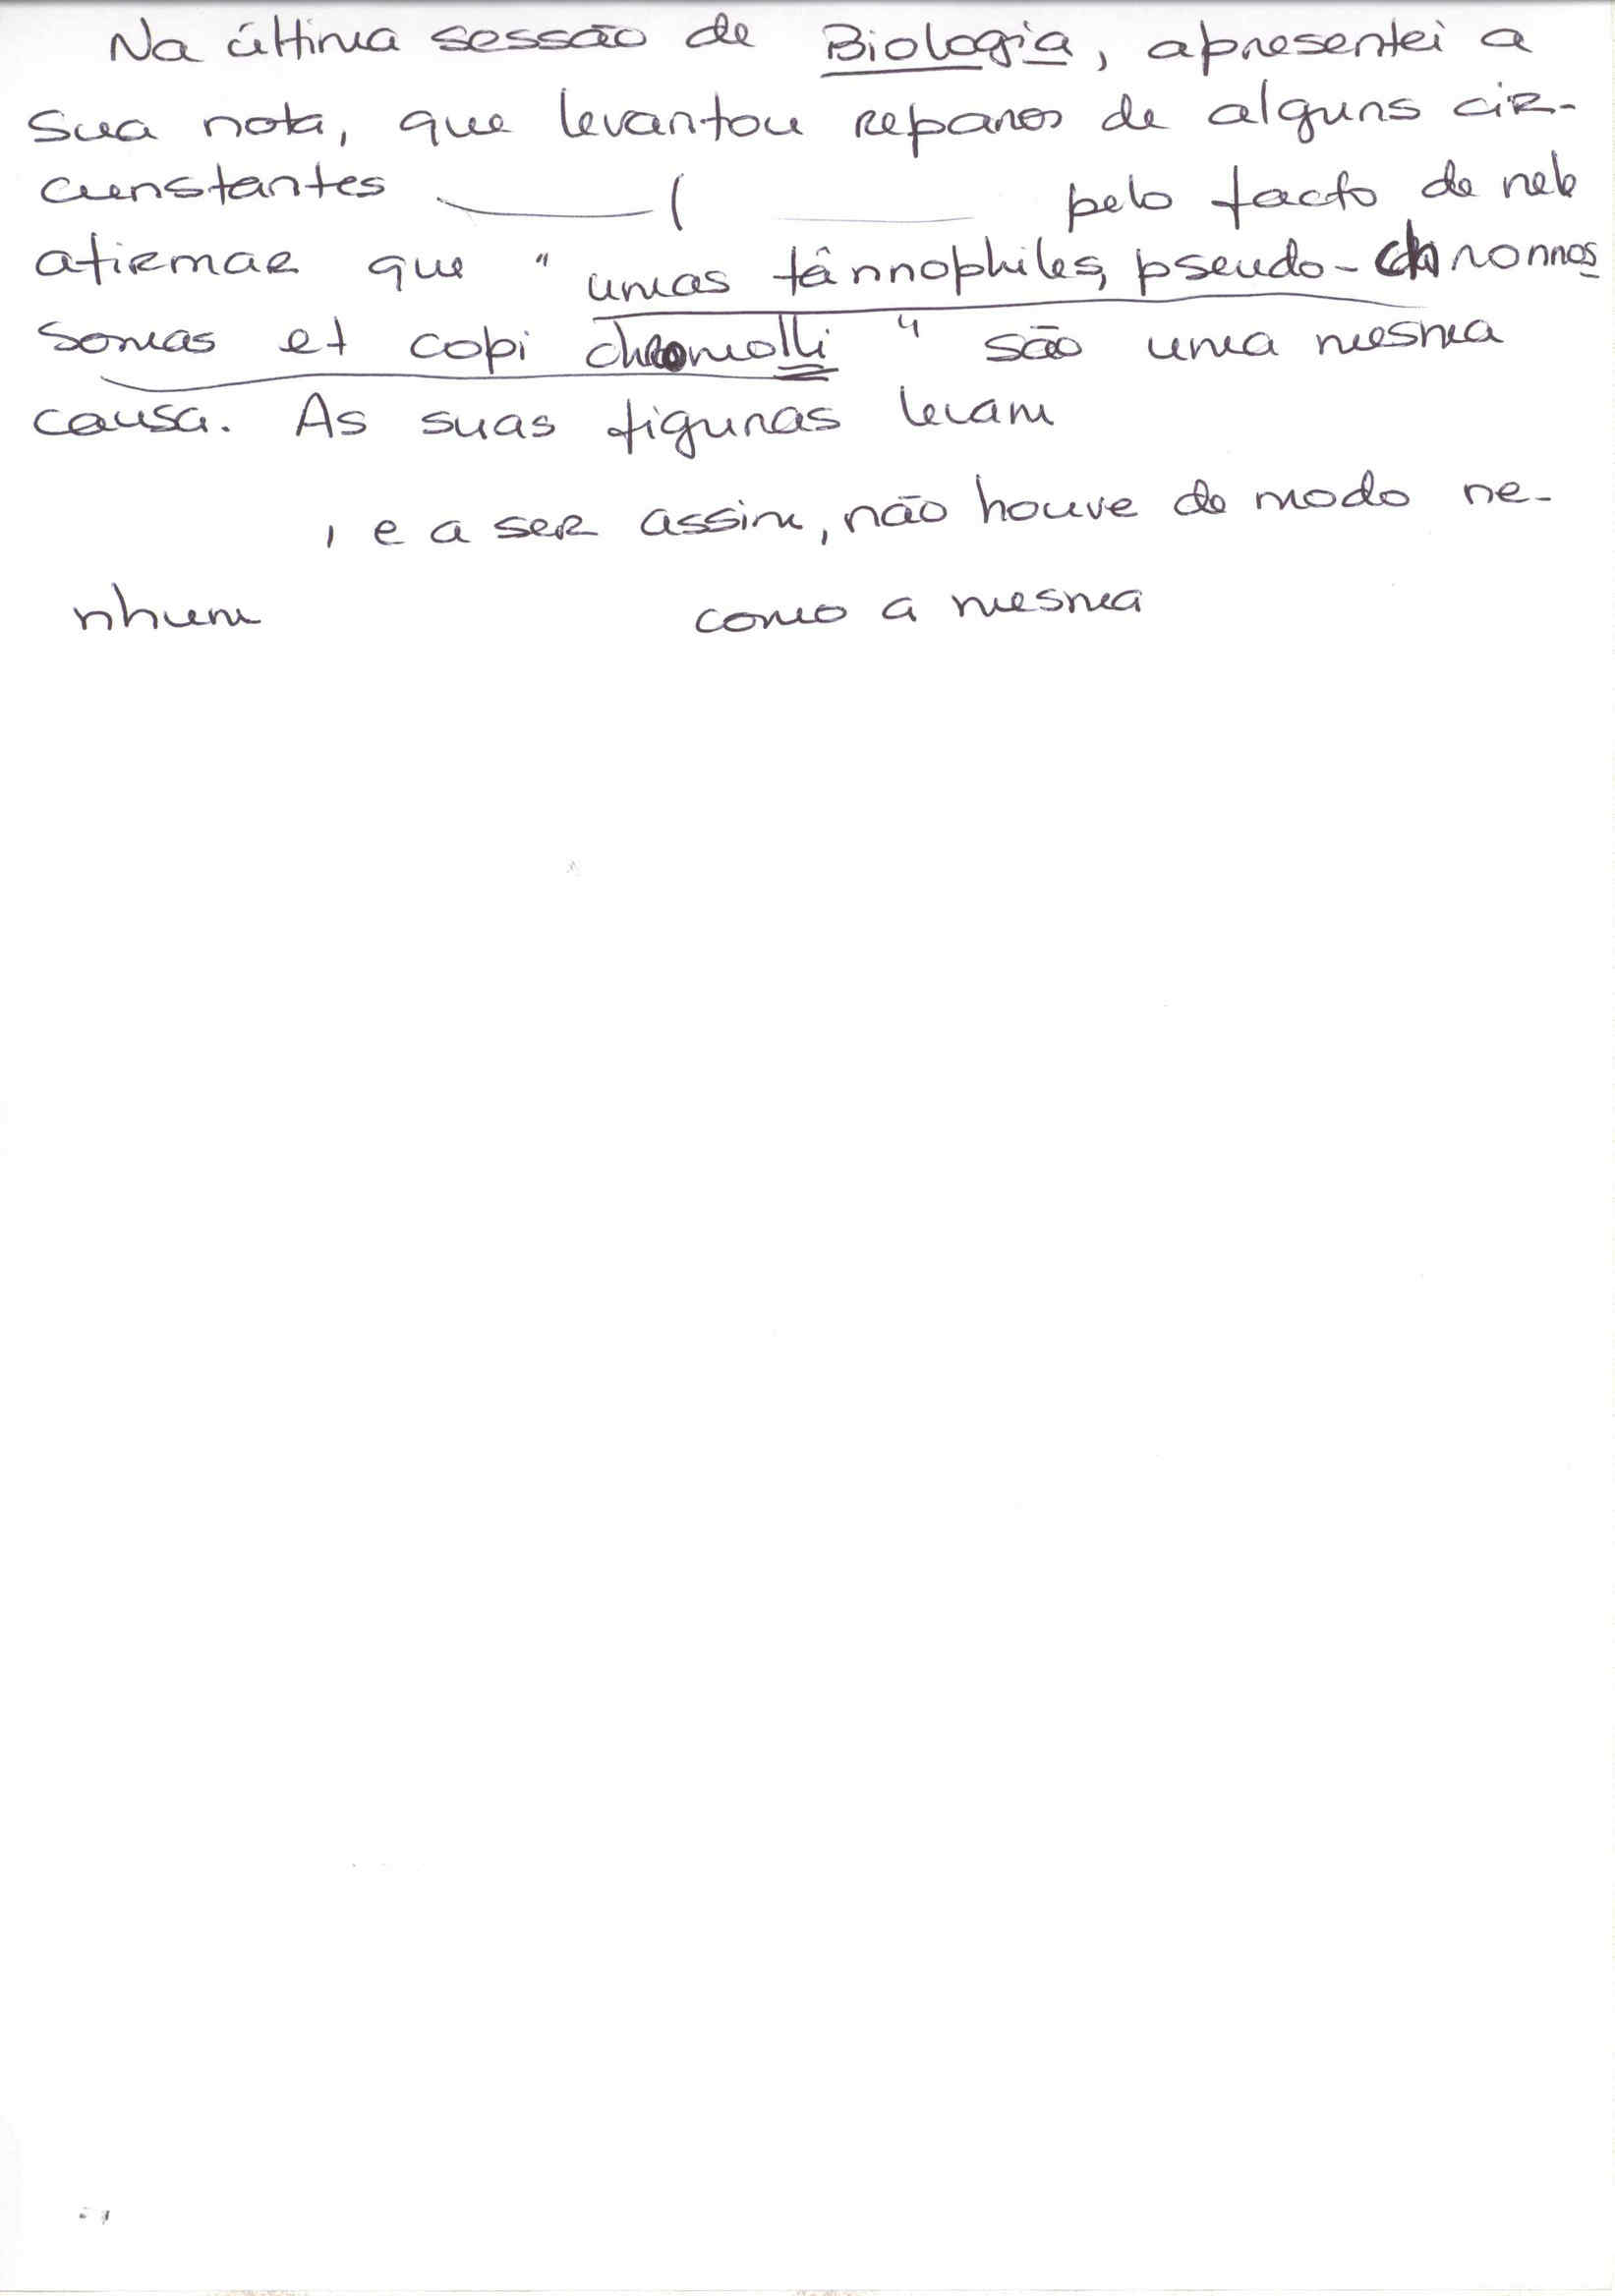 Na última sessão de Biologia, apresentei a
sua nota, que levantou reparos de alguns cir-
cunstantes ( pelo facto de nele
afirmar que " umas tânnophiles, pseudo-chronnos
somas et copi chromolli " são uma mesma
causa. As suas figuras levam
, e a ser assim, não houve de modo ne-
nhum como a mesma